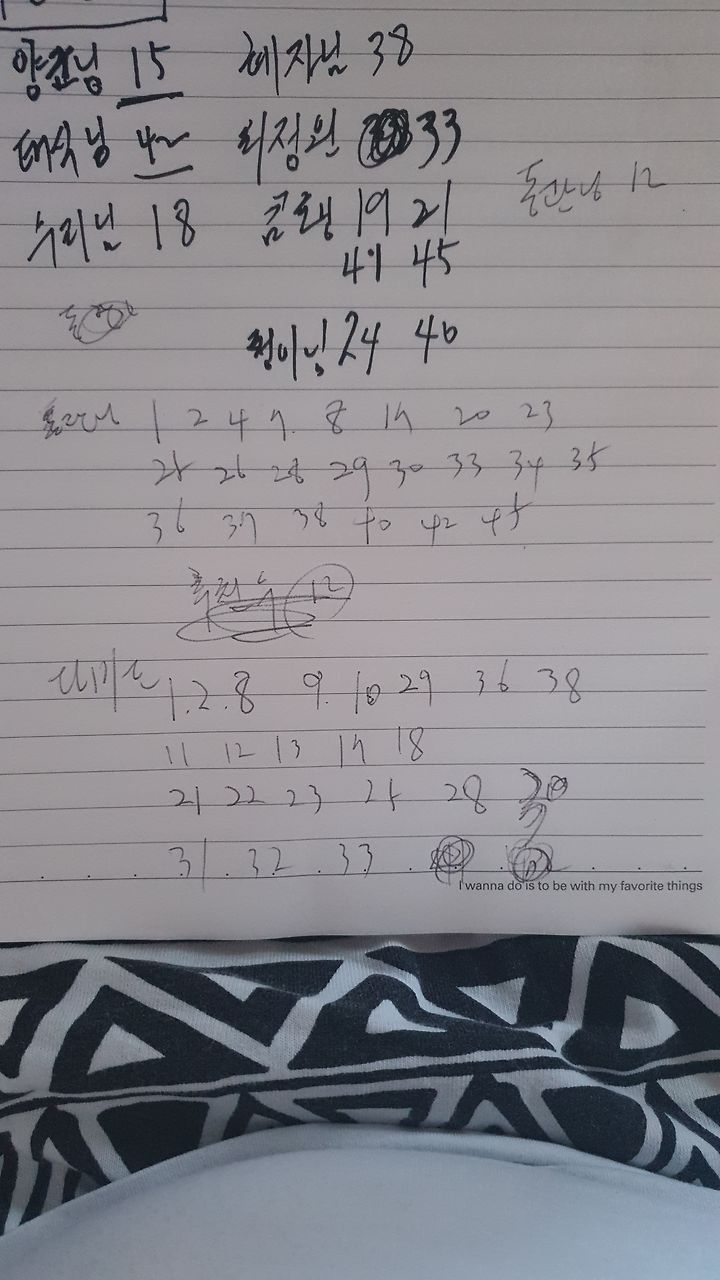 15 혜자님 38
태숙님 42 최정원 33
수리님 18 곰탱 19 21
41 45
돌산님 12
정이님 24 40
1 2 4 7. 8 17 20 23
25 26 28 29 30 33 34 35
36 37 38 40 42 45
12
1.2.8 9. 10 29 36 38
11 12 13 17 18
21 22 23 25 28
31. 32. 33
I wanna do is to be with my favorite things